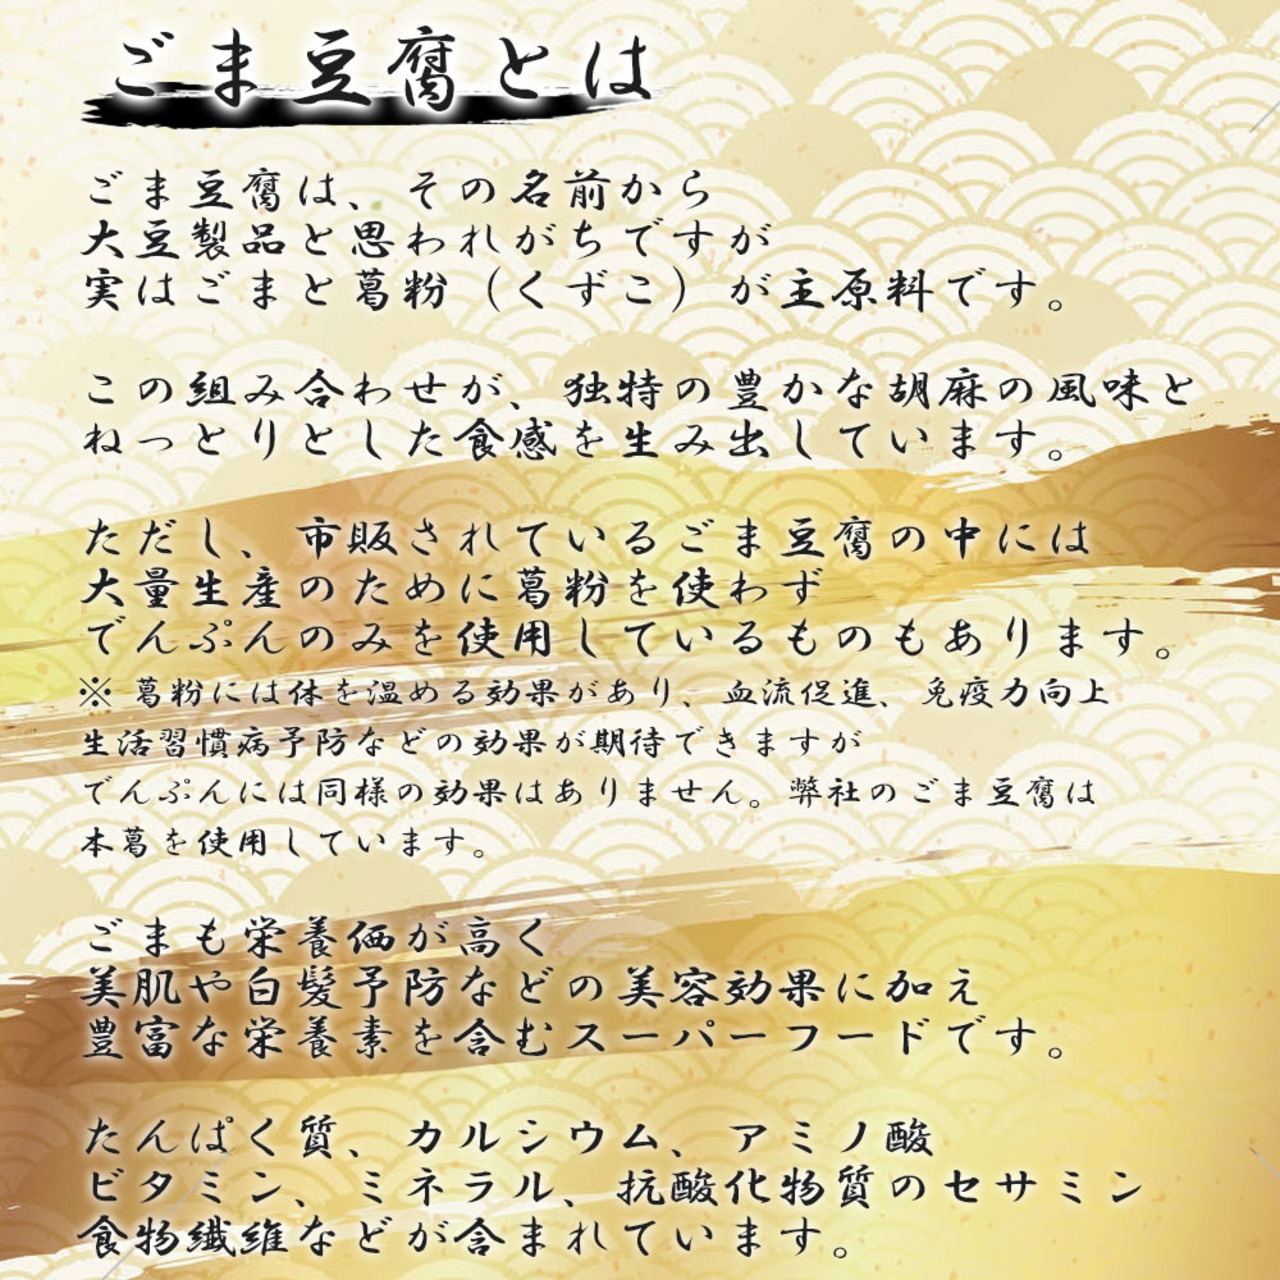 ごま豆腐とは
ごま豆腐は、その名前から
大豆製品と思われがちですが
実はごまと葛粉（くずこ）が主原料です。
この組み合わせが、独特の豊かな胡麻の風味と
ねっとりとした食感を生み出しています。
ただし、市販されているごま豆腐の中には
大量生産のために葛粉を使わず
でんぷんのみを使用しているものもあります。
※ 葛粉には体を温める効果があり、血流促進、免疫力向上
生活習慣病予防などの効果が期待できますが
でんぷんには同様の効果はありません。弊社のごま豆腐は
本葛を使用しています。
ごまも栄養価が高く
美肌や白髪予防などの美容効果に加え
豊富な栄養素を含むスーパーフードです。
たんぱく質、カルシウム、アミノ酸
ビタミン、ミネラル、抗酸化物質のセサミン
食物繊維などが含まれています。